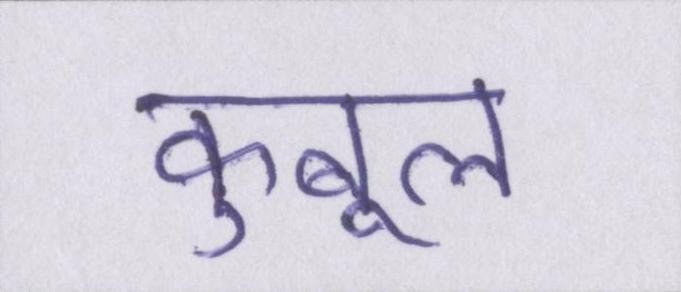 कुबूल